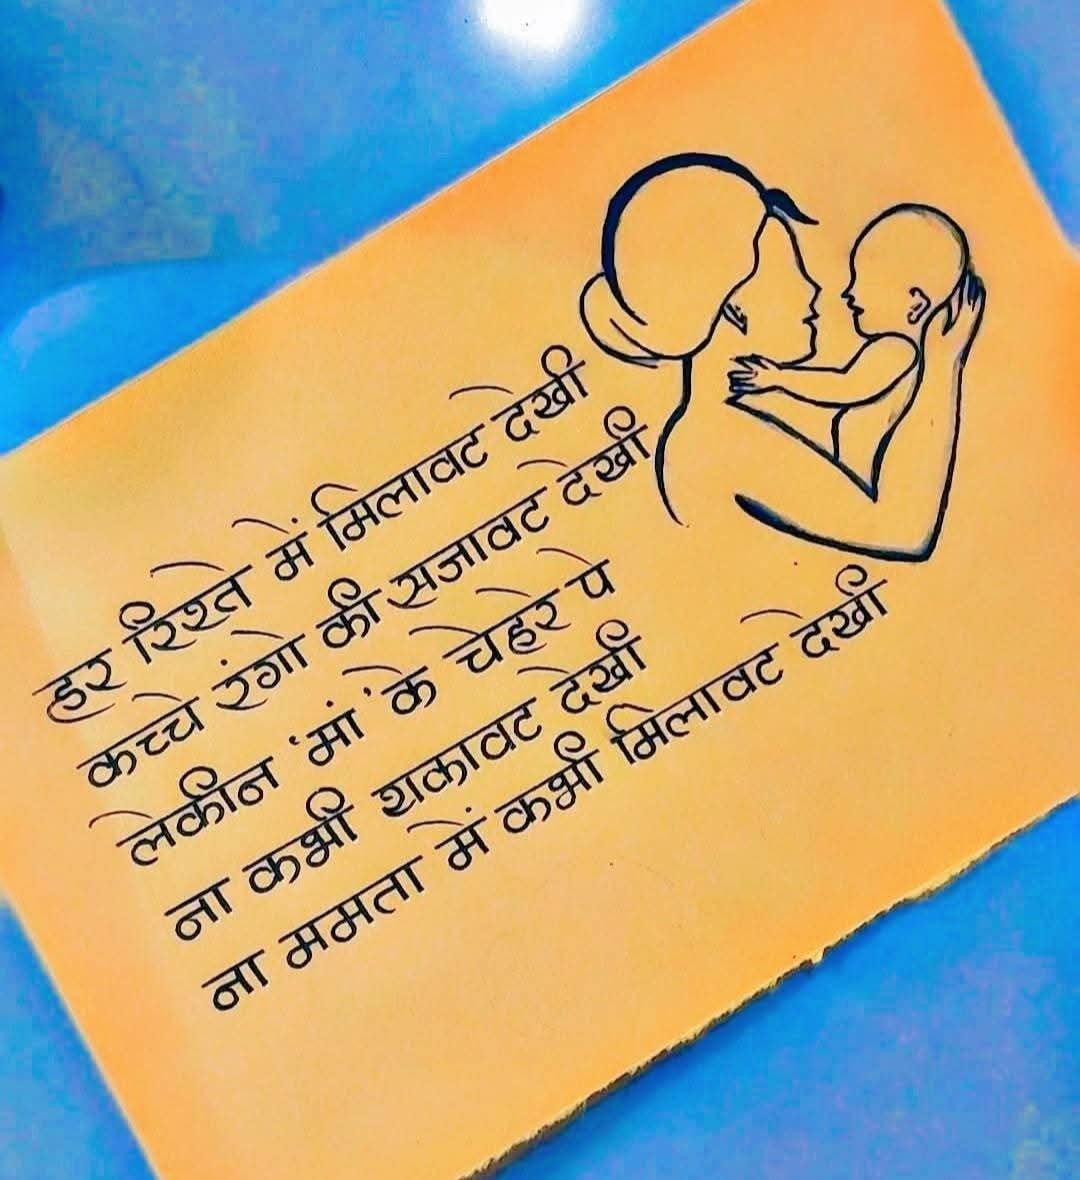 हर रिश्ते में मिलावट देखी
कच्चे रंगो की सजावट देखी
लेकीन 'मां' के चेहरे पे
ना कभी थकावट देखी
ना ममता में कभी मिलावट देखी